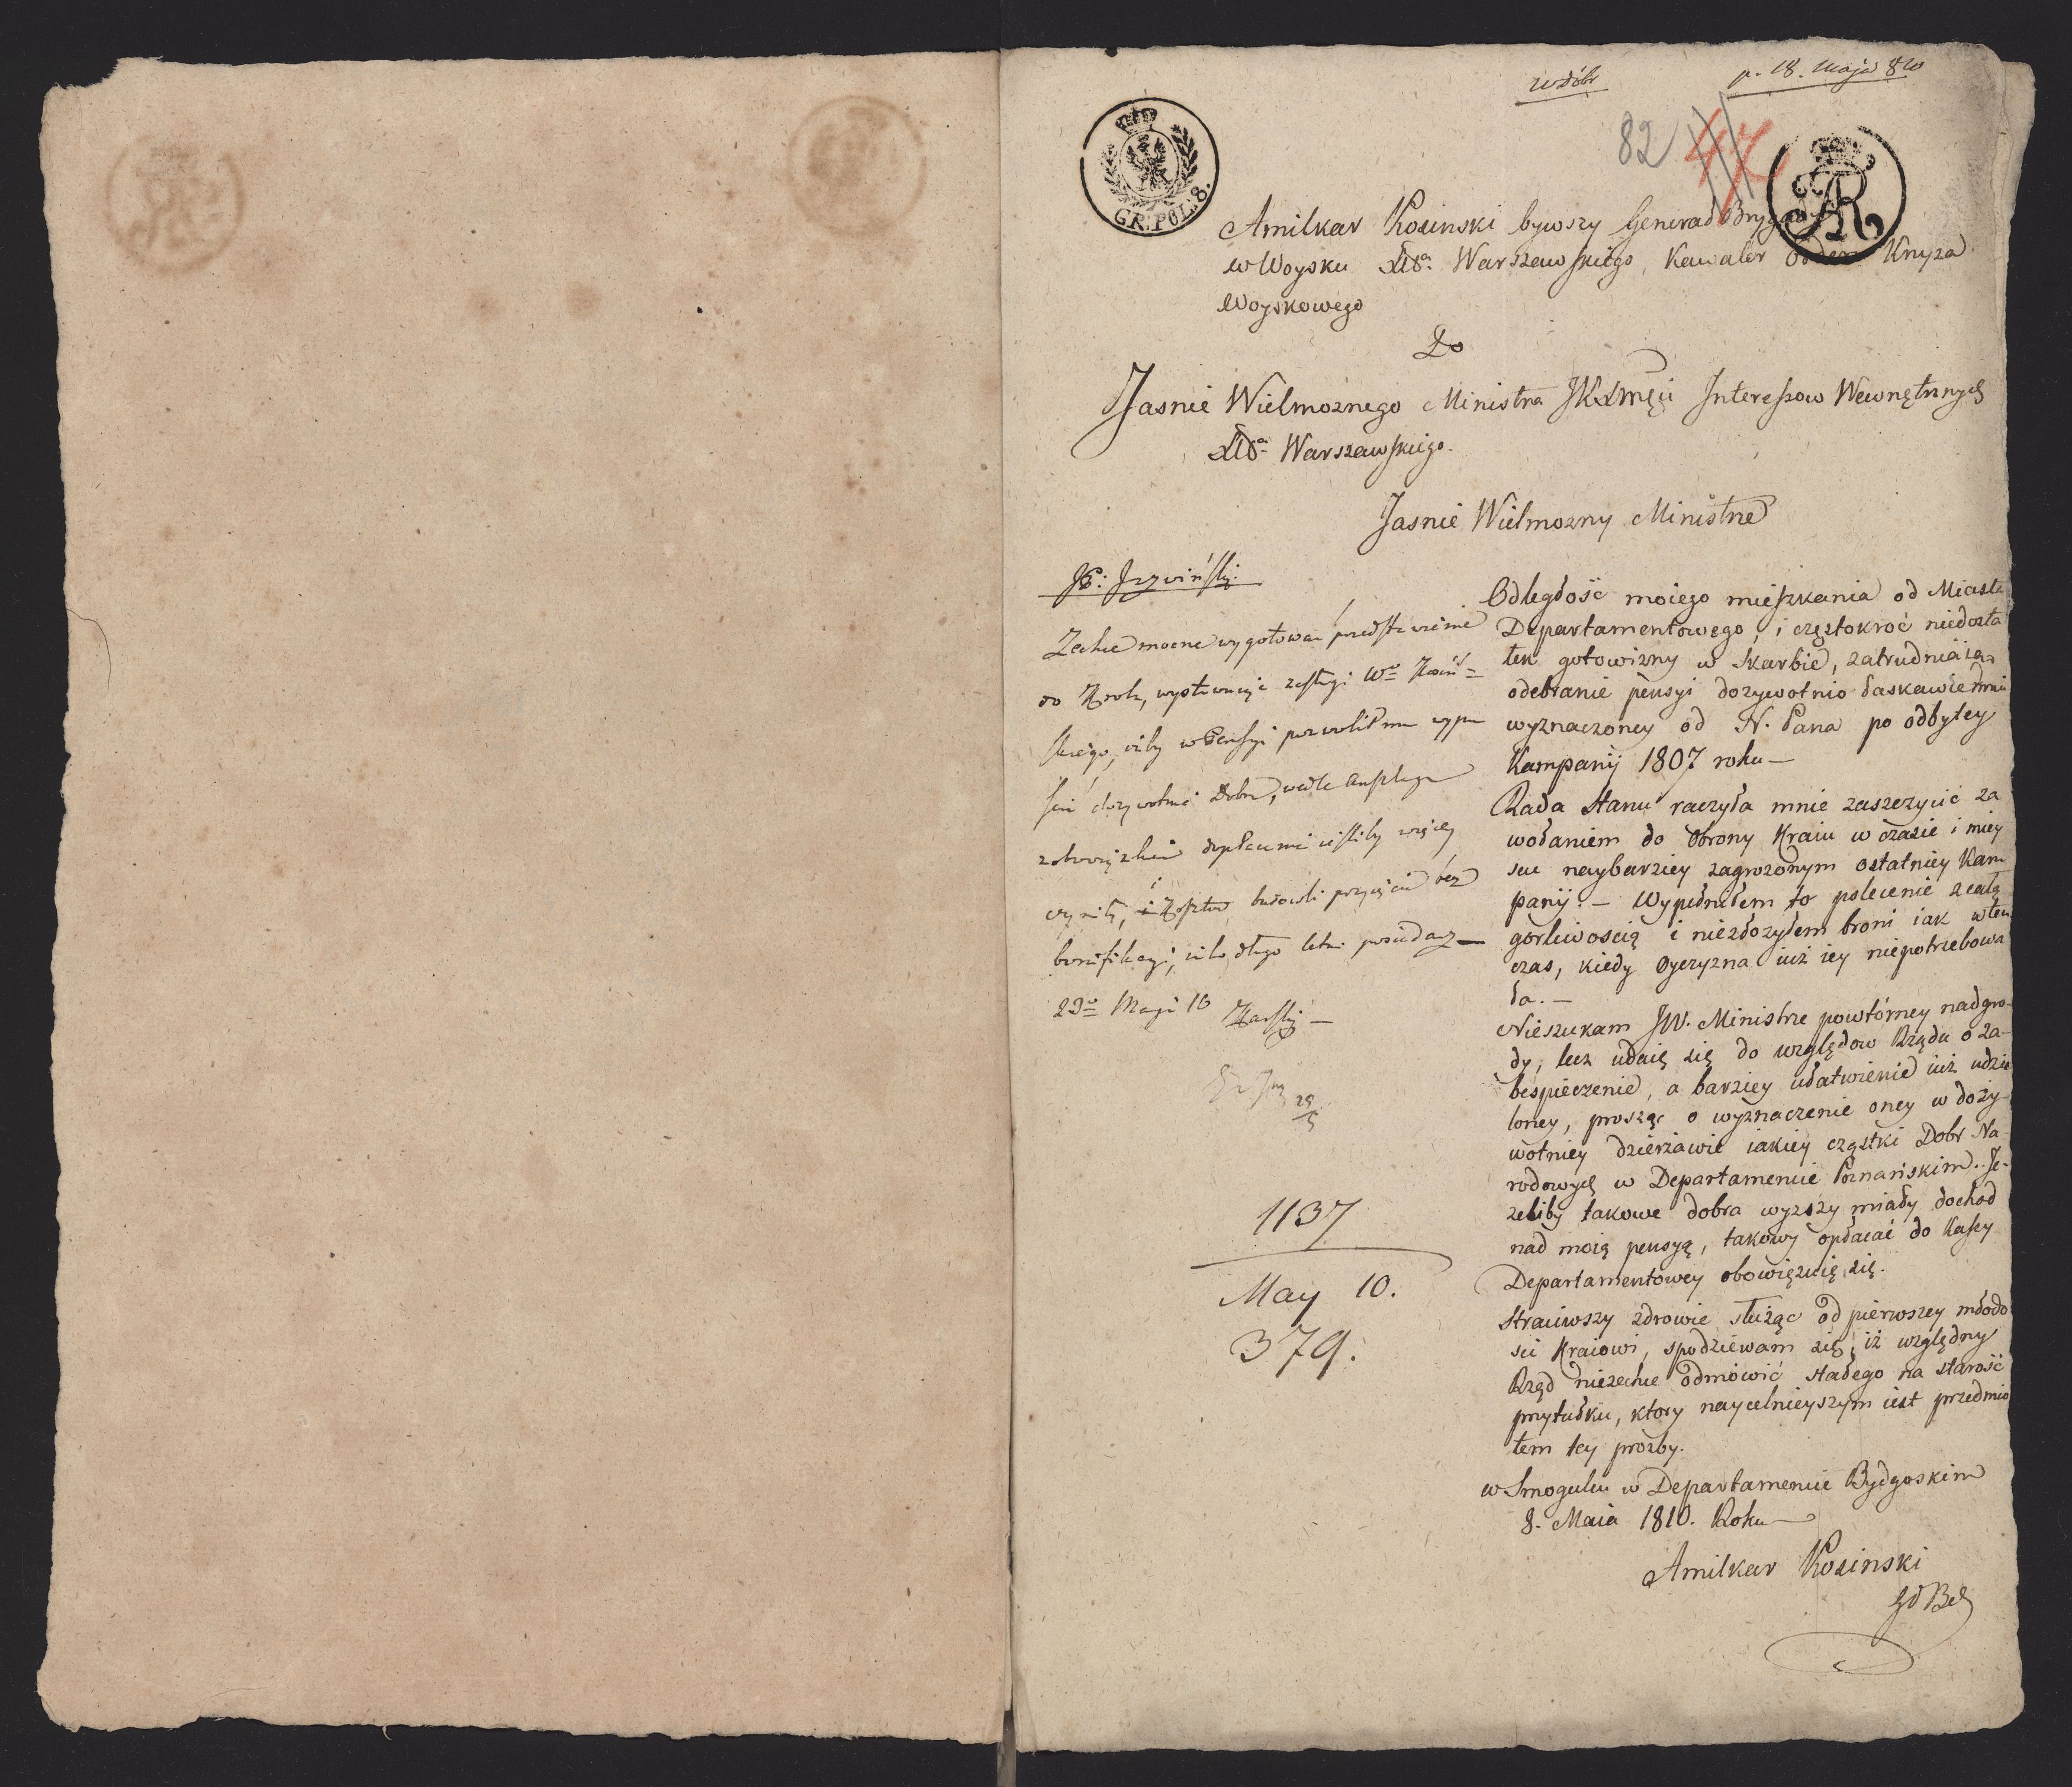 w dóbr
p. 18. Maja 810
82
GR: POL: 8.
Amilkar Kosinski bywszy Generał Bryga
w Woysku Xtwa. Warszawskiego, Kawaler Orderu Krzyza
Woyskowego
Do
Jasnie Wielmoznego Ministra Interessow Wewnętrznych
Xtwa Warszawskiego.
Jasnie Wielmozny Ministrze
Odległość moiego mieszkania od Miasta
Departamentowego, i częstokroć niedosta
tek gotowizny w Skarbie, zatrudniaią
odebranie pensyi dozywotnio łaskawie mnie
wyznaczoney od N. Pana po odbytey
Kampanij 1807 roku —
Rada Stanu raczyła mnie zaszczycić za
wołaniem do Obrony Kraiu w czasie i miey
scu naybarziey zagrozonym ostatniey Kam
panij. — Wypełniłem to polecenie z całą
gorliwością i niezłozyłem broni iak w ten
czas, kiedy Oyczyzna iuż iey niepotrzebowa
ła. —
Nieszukam JW. Ministrze powtórney nadgro-
dy, lecz udaię się do względow Rządu o za-
bespieczenie, a barziey ułatwienie iuż udzie
loney, prosząc o wyznaczenie oney w doży-
wotniey dzierżawie iakiey cząstki Dobr Na-
rodowych w Departamencie Poznańskim. Je-
zeliby takowe dobra wyzszy miały dochod
nad moią pensyą, takowy opłacać do Kassy
Departamentowey obowięzuię się.
Straciwszy zdrowie służąc od pierwszey młodo
sci Kraiowi, spodziewam się, iż względny
Rząd niezechce odmówić stałego na starość
przytułku, ktory naycelnieyszym iest przedmio
tem tey prozby.
w Smogulcu w Departamencie Bydgoskim
8. Maia 1810. Roku
Amilkar Kosinski
Zechce mocne wygotować przedstawienie
do Krola, wystawuiąc zasługi
skiego, iżby w Pensyi pozwolił mu wypu
ścić dozywotnie Dobra,
bonifikacyi,
1137
May 10.
379.